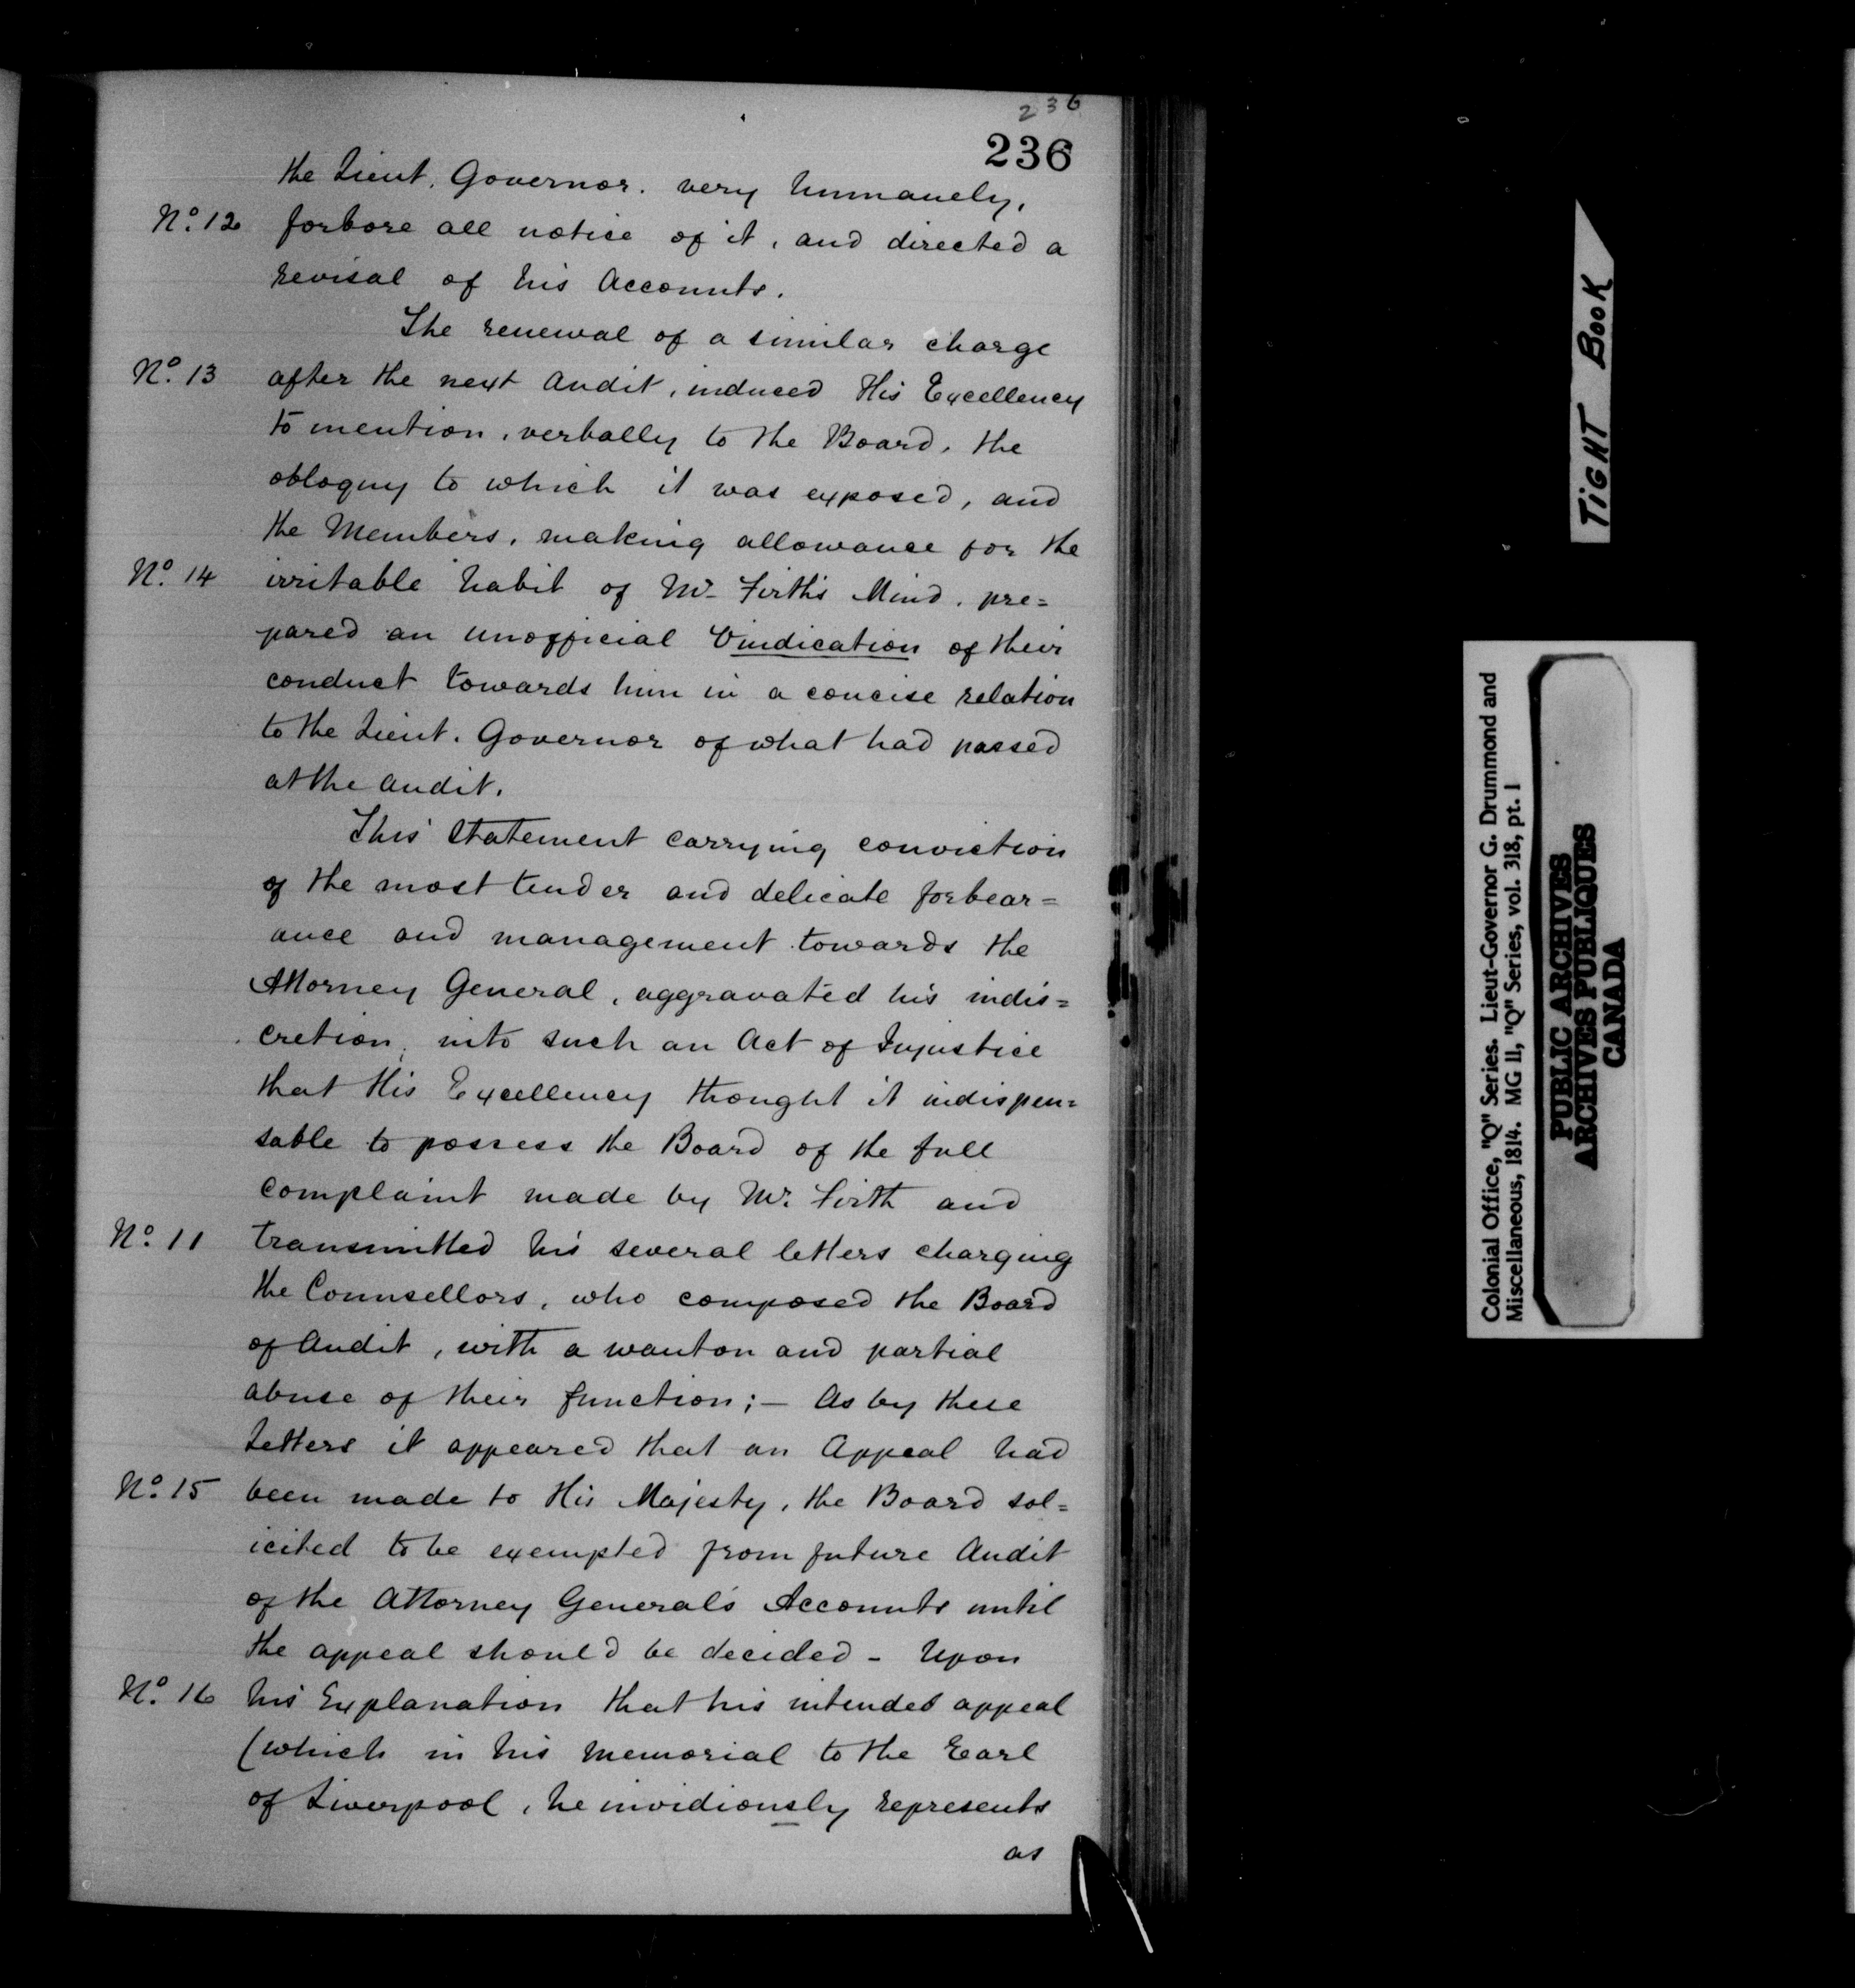 236
236
the Lieut. Governor. very humanely,
No. 12 forbore all notice of it, and directed a
revisal of his Accounts.
The renewal of a similar charge
No. 13 after the next Audit, induced His Excellency
to mention, verbally to the Board, the
obloquy to which it was exposed, and
the Members, making allowance for the
No. 14 irritable habit of Mr. Firth's Mind, pre=
pared an unofficial Vindication of their
conduct towards him in a concise relation
to the Lieut. Governor of what had passed
at the Audit.
This Statement carrying conviction
of the most tender and delicate forbear=
ance and management towards the
Attorney General, aggravated his indis=
cretion, into such an Act of Injustice
that His Excellency thought it indispen=
sable to possess the Board of the full
complaint made by Mr. Firth and
No. 11 transmitted his several letters charging
the Counsellors, who composed the Board
of Audit, with a wanton and partial
abuse of their function; — As by these
letters it appeared that an Appeal had
No. 15 been made to His Majesty, the Board sol=
icited to be exempted from future Audit
of the Attorney General's Accounts until
the appeal should be decided - Upon
No. 16 his Explanation that his intended appeal
(which in his Memorial to the Earl
of Liverpool, he invidiously represents
as
TIGHT BOOK
Colonial Office, "Q" Series. Lieut-Governor G. Drummond and
Miscellaneous, 1814. MG 11, "Q" Series, vol. 318, pt. 1
PUBLIC ARCHIVES
ARCHIVES PUBLIQUES
CANADA